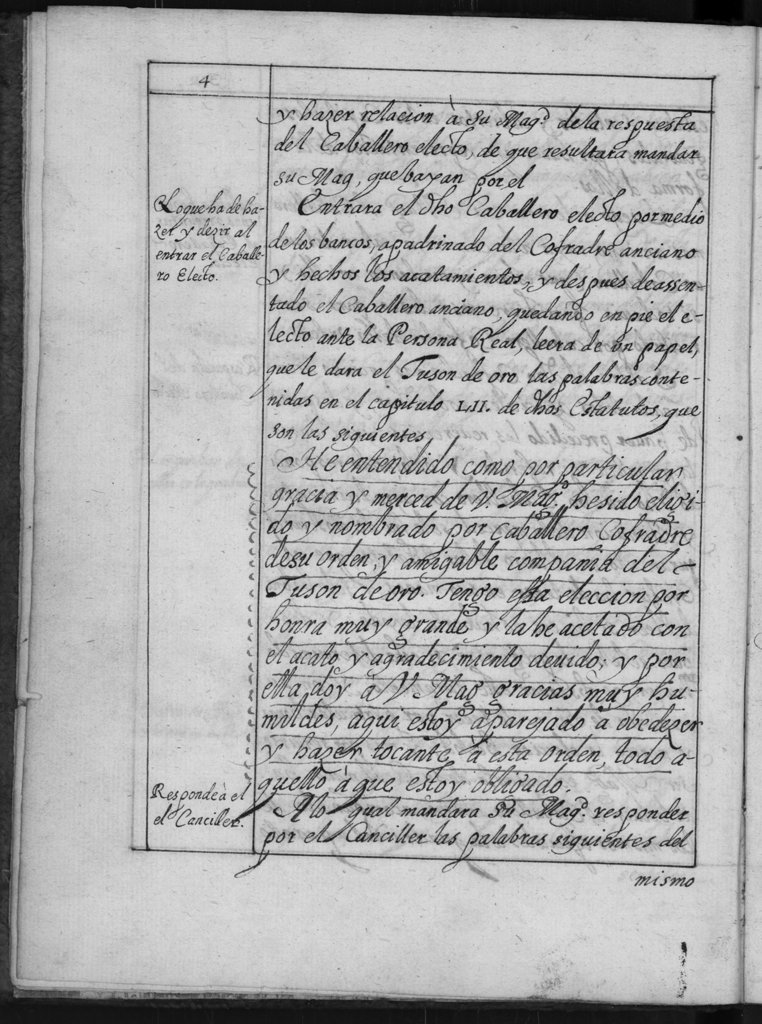 4
y hazer relacion à su Mag.ᵈ dela respuesta
del Caballero electo, de que resultara mandar
su Mag, que bayan por el
Lo que ha de ha-
zer y dezir al
entrar el Caballe-
ro Electo.
Entrara el dho Caballero electo por medio
de los bancos, apadrinado del Cofradre anciano
y hechos los acatamientos, y despues de assen-
tado el Caballero anciano, quedando en pie el e-
lecto ante la Persona Real, leera de un papel,
que le dara el Tuson de oro las palabras conte-
nidas en el capitulo LII. de dhos Estatutos, que
son las siguientes
He entendido como por particular
gracia y merced de V. Mag.ᵈ he sido eligi-
do y nombrado por caballero Cofradre
de su orden, y amigable compañia del
Tuson de oro. Tengo essa eleccion por
honra muy grande y la he acetado con
el acato y agradecimiento deuido; y por
ella doy à V Mag gracias muy hu-
mildes, aqui estoy aparejado à obedezer
y hazer tocante à esta orden, todo a-
quello à que estoy obligado.
Responde à el
el Canciller.
A lo qual mandara su Mag.ᵈ responder
por el Canciller las palabras siguientes del
mismo